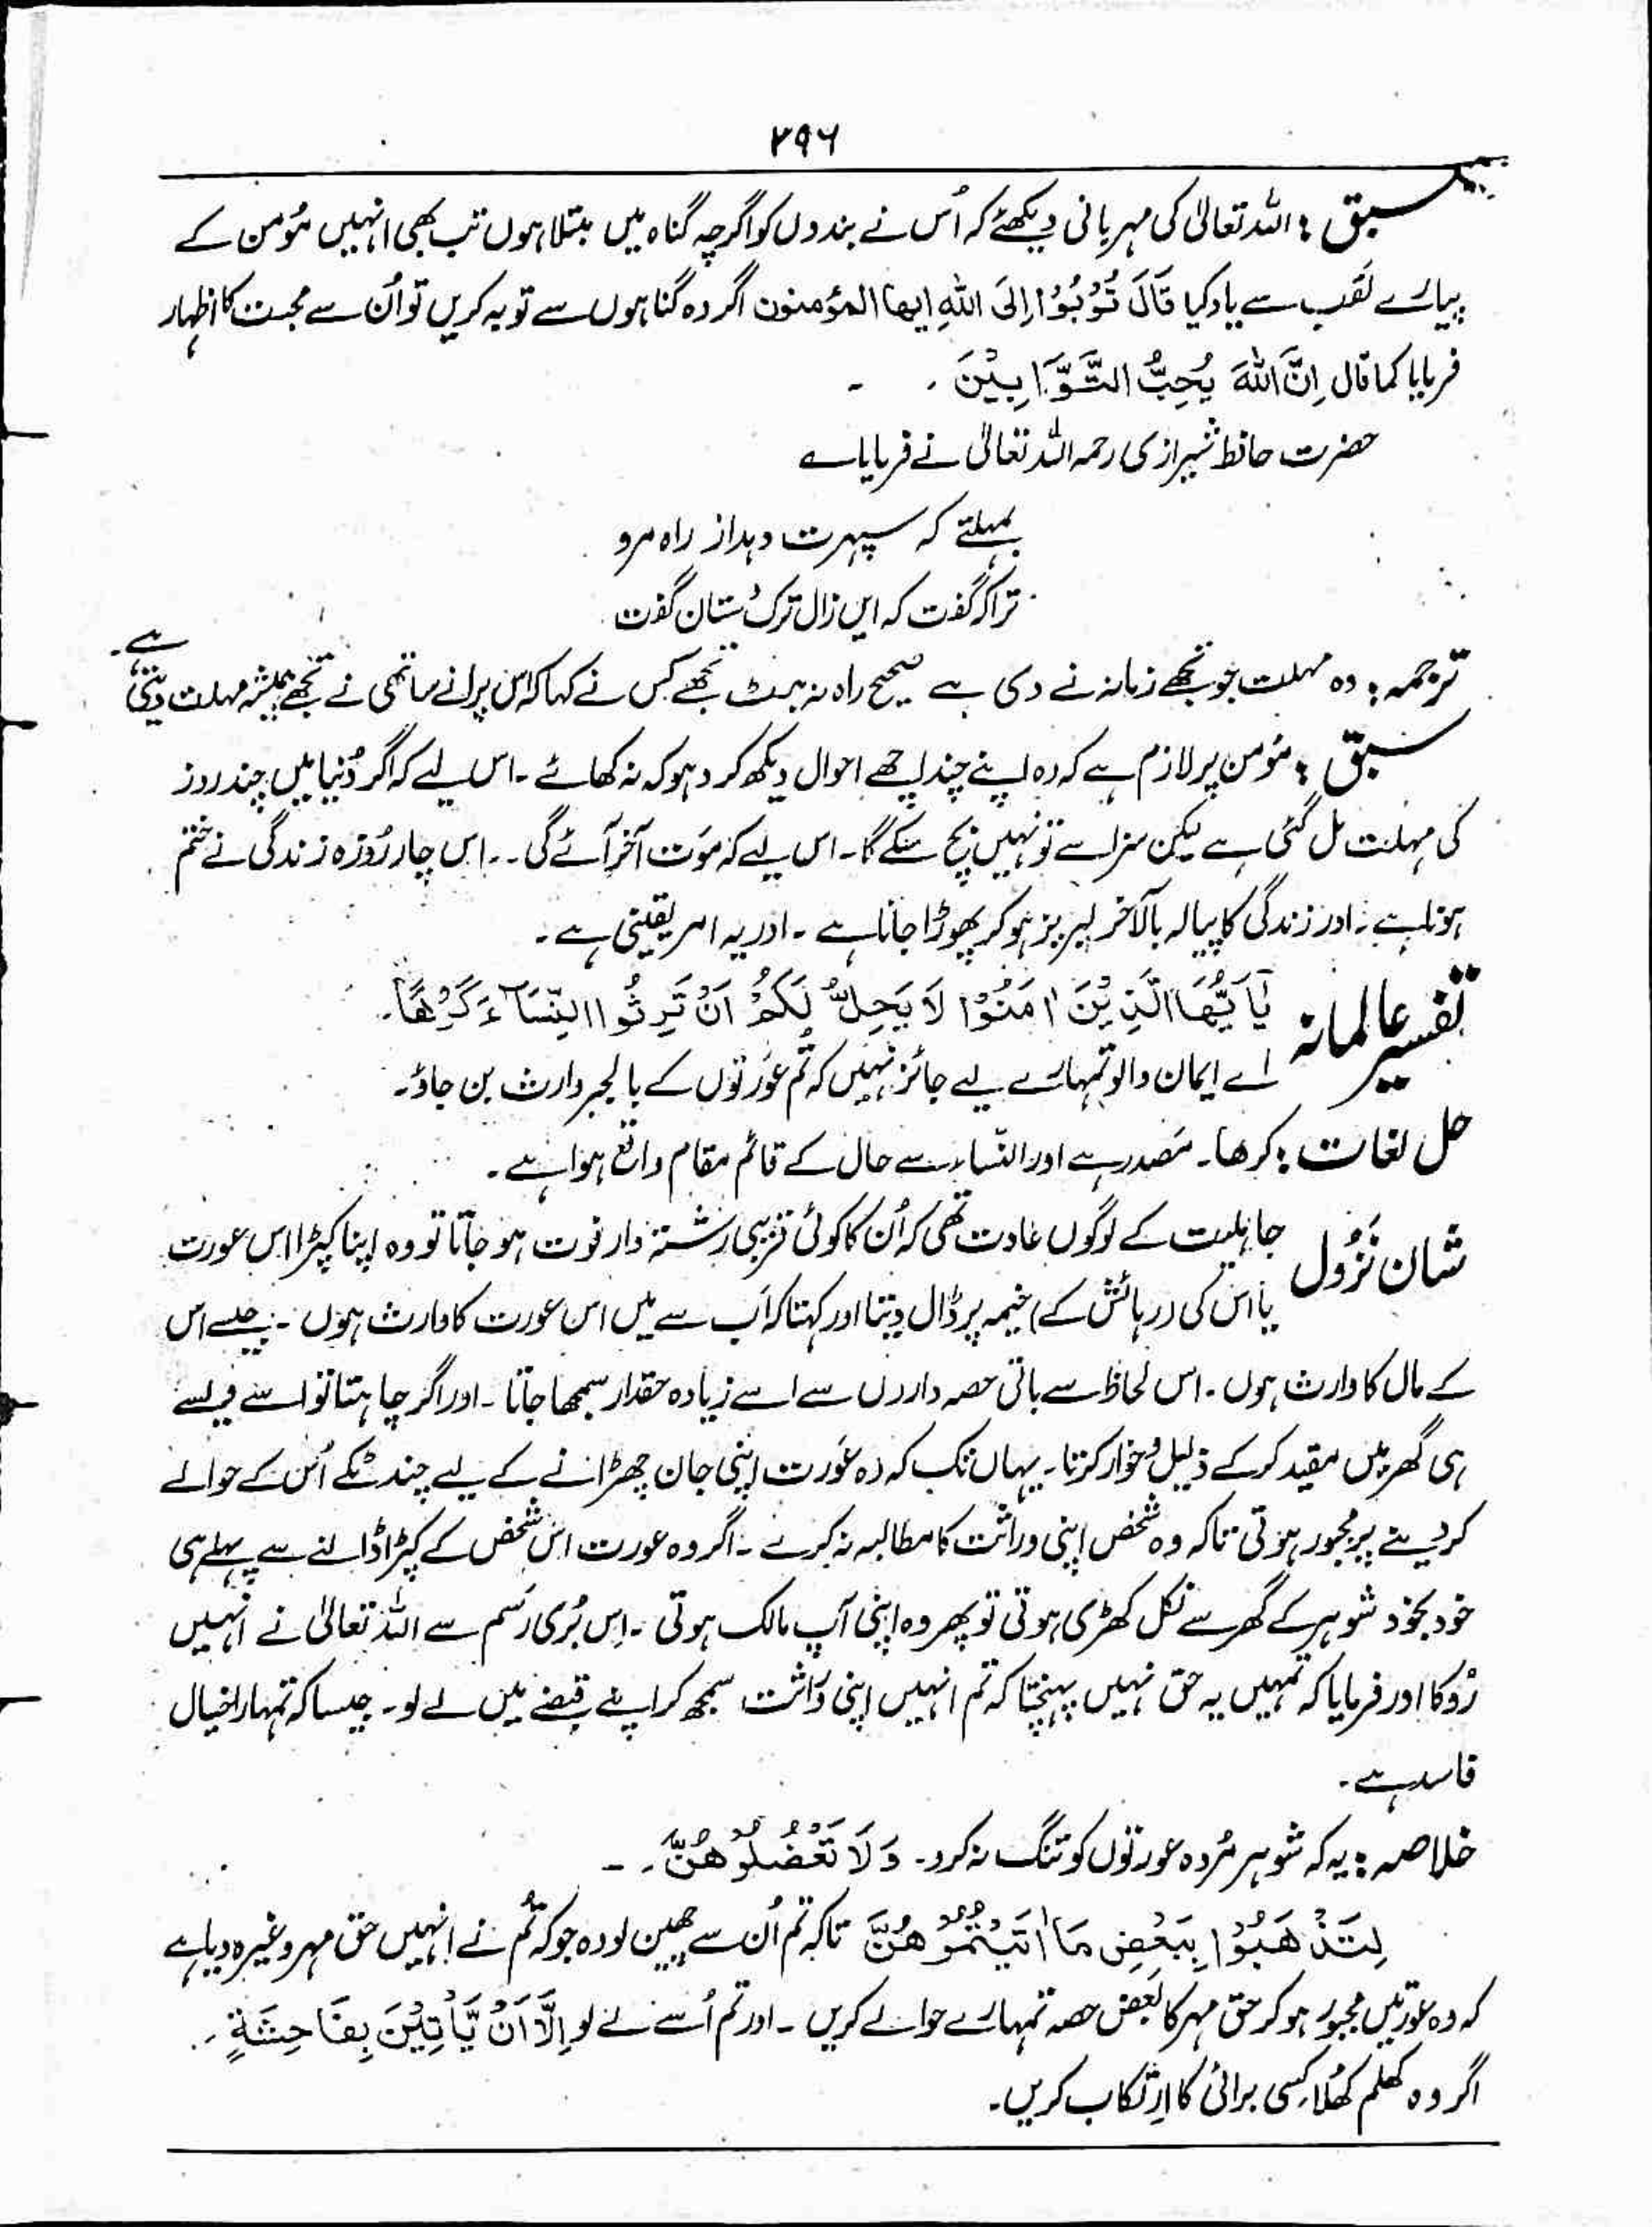 ۲۹۶
سبق : اللہ تعالیٰ کی مہربانی دیکھئے کہ اُس نے بندوں کو اگرچہ گناہ میں مبتلا ہوں تب بھی انہیں مُؤمن کے
پیارے لَقَب سے یاد کیا قَالَ تُوْبُوْا اِلَی اللهِ ایھا المؤمنون اگر وہ گناہوں سے توبہ کریں تو اُن سے محبت کا اظہار
فرمایا کما قال اِنَّ اللّٰهَ یُحِبُّ التَّوَّابِیْنَ ۔
حضرت حافظ شیرازی رحمہ اللہ تعالیٰ نے فرمایا ؎
بمہلتے کہ سپہرت دہد از راہ مرو
ترا کہ گفت کہ ایں زال ترک دستان گفت
ترجمہ : وہ مہلت جو تجھے زمانہ نے دی ہے صحیح راہ نہ ہٹ تجھے کس نے کہا کہ اس پرانے ساتھی نے تجھے ہمیشہ مہلت دینی ہے۔
سبق : مؤمن پر لازم ہے کہ وہ اپنے چند اچھے احوال دیکھ کر دہوکہ نہ کھائے ۔ اس لیے کہ اگر دُنیا میں چند روز
کی مہلت مل گئی ہے لیکن سزا سے تو نہیں بچ سکے گا۔ اس لیے کہ مَوت آخر آئے گی ۔۔ اس چار رُوزہ زندگی نے ختم
ہونا ہے ۔ اور زندگی کا پیالہ بالآخر لبریز ہو کر پھوڑا جانا ہے ۔ اور یہ امر یقینی ہے ۔
تفسیر عالمانہ یٰۤاَیُّهَا الَّذِیْنَ اٰمَنُوْا لَا یَحِلُّ لَکُمْ اَنْ تَرِثُوا النِّسَآءَ کَرْهًا۔
اے ایمان والو تمہارے لیے جائز نہیں کہ تُم عَورتوں کے بالجبر وارث بن جاؤ۔
حل لغات : کرھا۔ مَصدر ہے اور النّساء سے حال کے قائم مقام واقع ہوا ہے ۔
شان نَزُول جاہلیت کے لوگوں عادت تھی کہ اُن کا کوئی قریبی رشتہ دار فوت ہو جاتا تو وہ اپنا کپڑا اس عورت
یا اس کی (رہائش کے) خیمہ پر ڈال دیتا اور کہتا کہ اَب سے میں اس عورت کا وارث ہوں ۔ جیسے اس
کے مال کا وارث ہوں ۔ اس لحاظ سے باقی حصہ داروں سے اسے زیادہ حقدار سمجھا جاتا ۔ اور اگر چاہتا تو اسے ویسے
ہی گھر میں مقید کر کے ذلیل و خوار کرتا ۔ یہاں تک کہ وہ عَورت اپنی جان چھڑانے کے لیے چند ٹکے اُس کے حوالے
کر دینے پر مجبور ہوتی تاکہ وہ شخص اپنی وراثت کا مطالبہ نہ کرے ۔ اگر وہ عورت اس شخص کے کپڑا ڈالنے سے پہلے ہی
خود بخود شوہر کے گھر سے نکل کھڑی ہوتی تو پھر وہ اپنی آپ مالک ہوتی ۔ اِس بُری رَسم سے اللہ تعالیٰ نے انہیں
رُوکا اور فرمایا کہ تمہیں یہ حق نہیں پہنچتا کہ تم انہیں اپنی وَراثت سمجھ کر اپنے قبضے میں لے لو۔ جیسا کہ تمہارا خیال
فاسد ہے ۔
خلاصہ : یہ کہ شوہر مُردہ عورتوں کو تنگ نہ کرو ۔ وَلَا تَعْضُلُوْهُنَّ ۔
لِتَذْهَبُوْا بِبَعْضِ مَا اٰتَیْتُمُوْهُنَّ تاکہ تم اُن سے چھین لو وہ جو کہ تُم نے انہیں حق مہر وغیرہ دیا ہے
کہ وہ عورتیں مجبور ہو کر حق مہر کا بَعض حصہ تمہارے حوالے کریں ۔ اور تم اُسے لے لو اِلَّا اَنْ یَّاْتِیْنَ بِفَاحِشَةٍ ۔
اگر وہ کھلم کھُلا کسی برائی کا اِرتکاب کریں۔